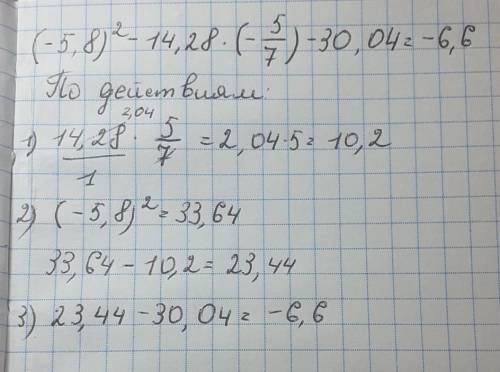 (-5,8)² - 14,28 · (-5/7) - 30,04 = -6,6
По действиям:
1) 14,28/1 · 5/7 = 2,04·5 = 10,2
2,04
2) (-5,8)² = 33,64
33,64 - 10,2 = 23,44
3) 23,44 - 30,04 = -6,6